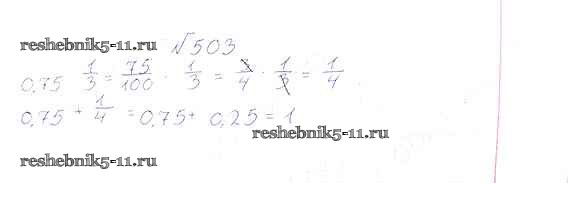 reshebnik5-11.ru
№503
0,75 1/3 = 75/100 · 1/3 = 3/4 · 1/3 = 1/4
0,75 + 1/4 = 0,75 + 0,25 = 1
reshebnik5-11.ru
reshebnik5-11.ru